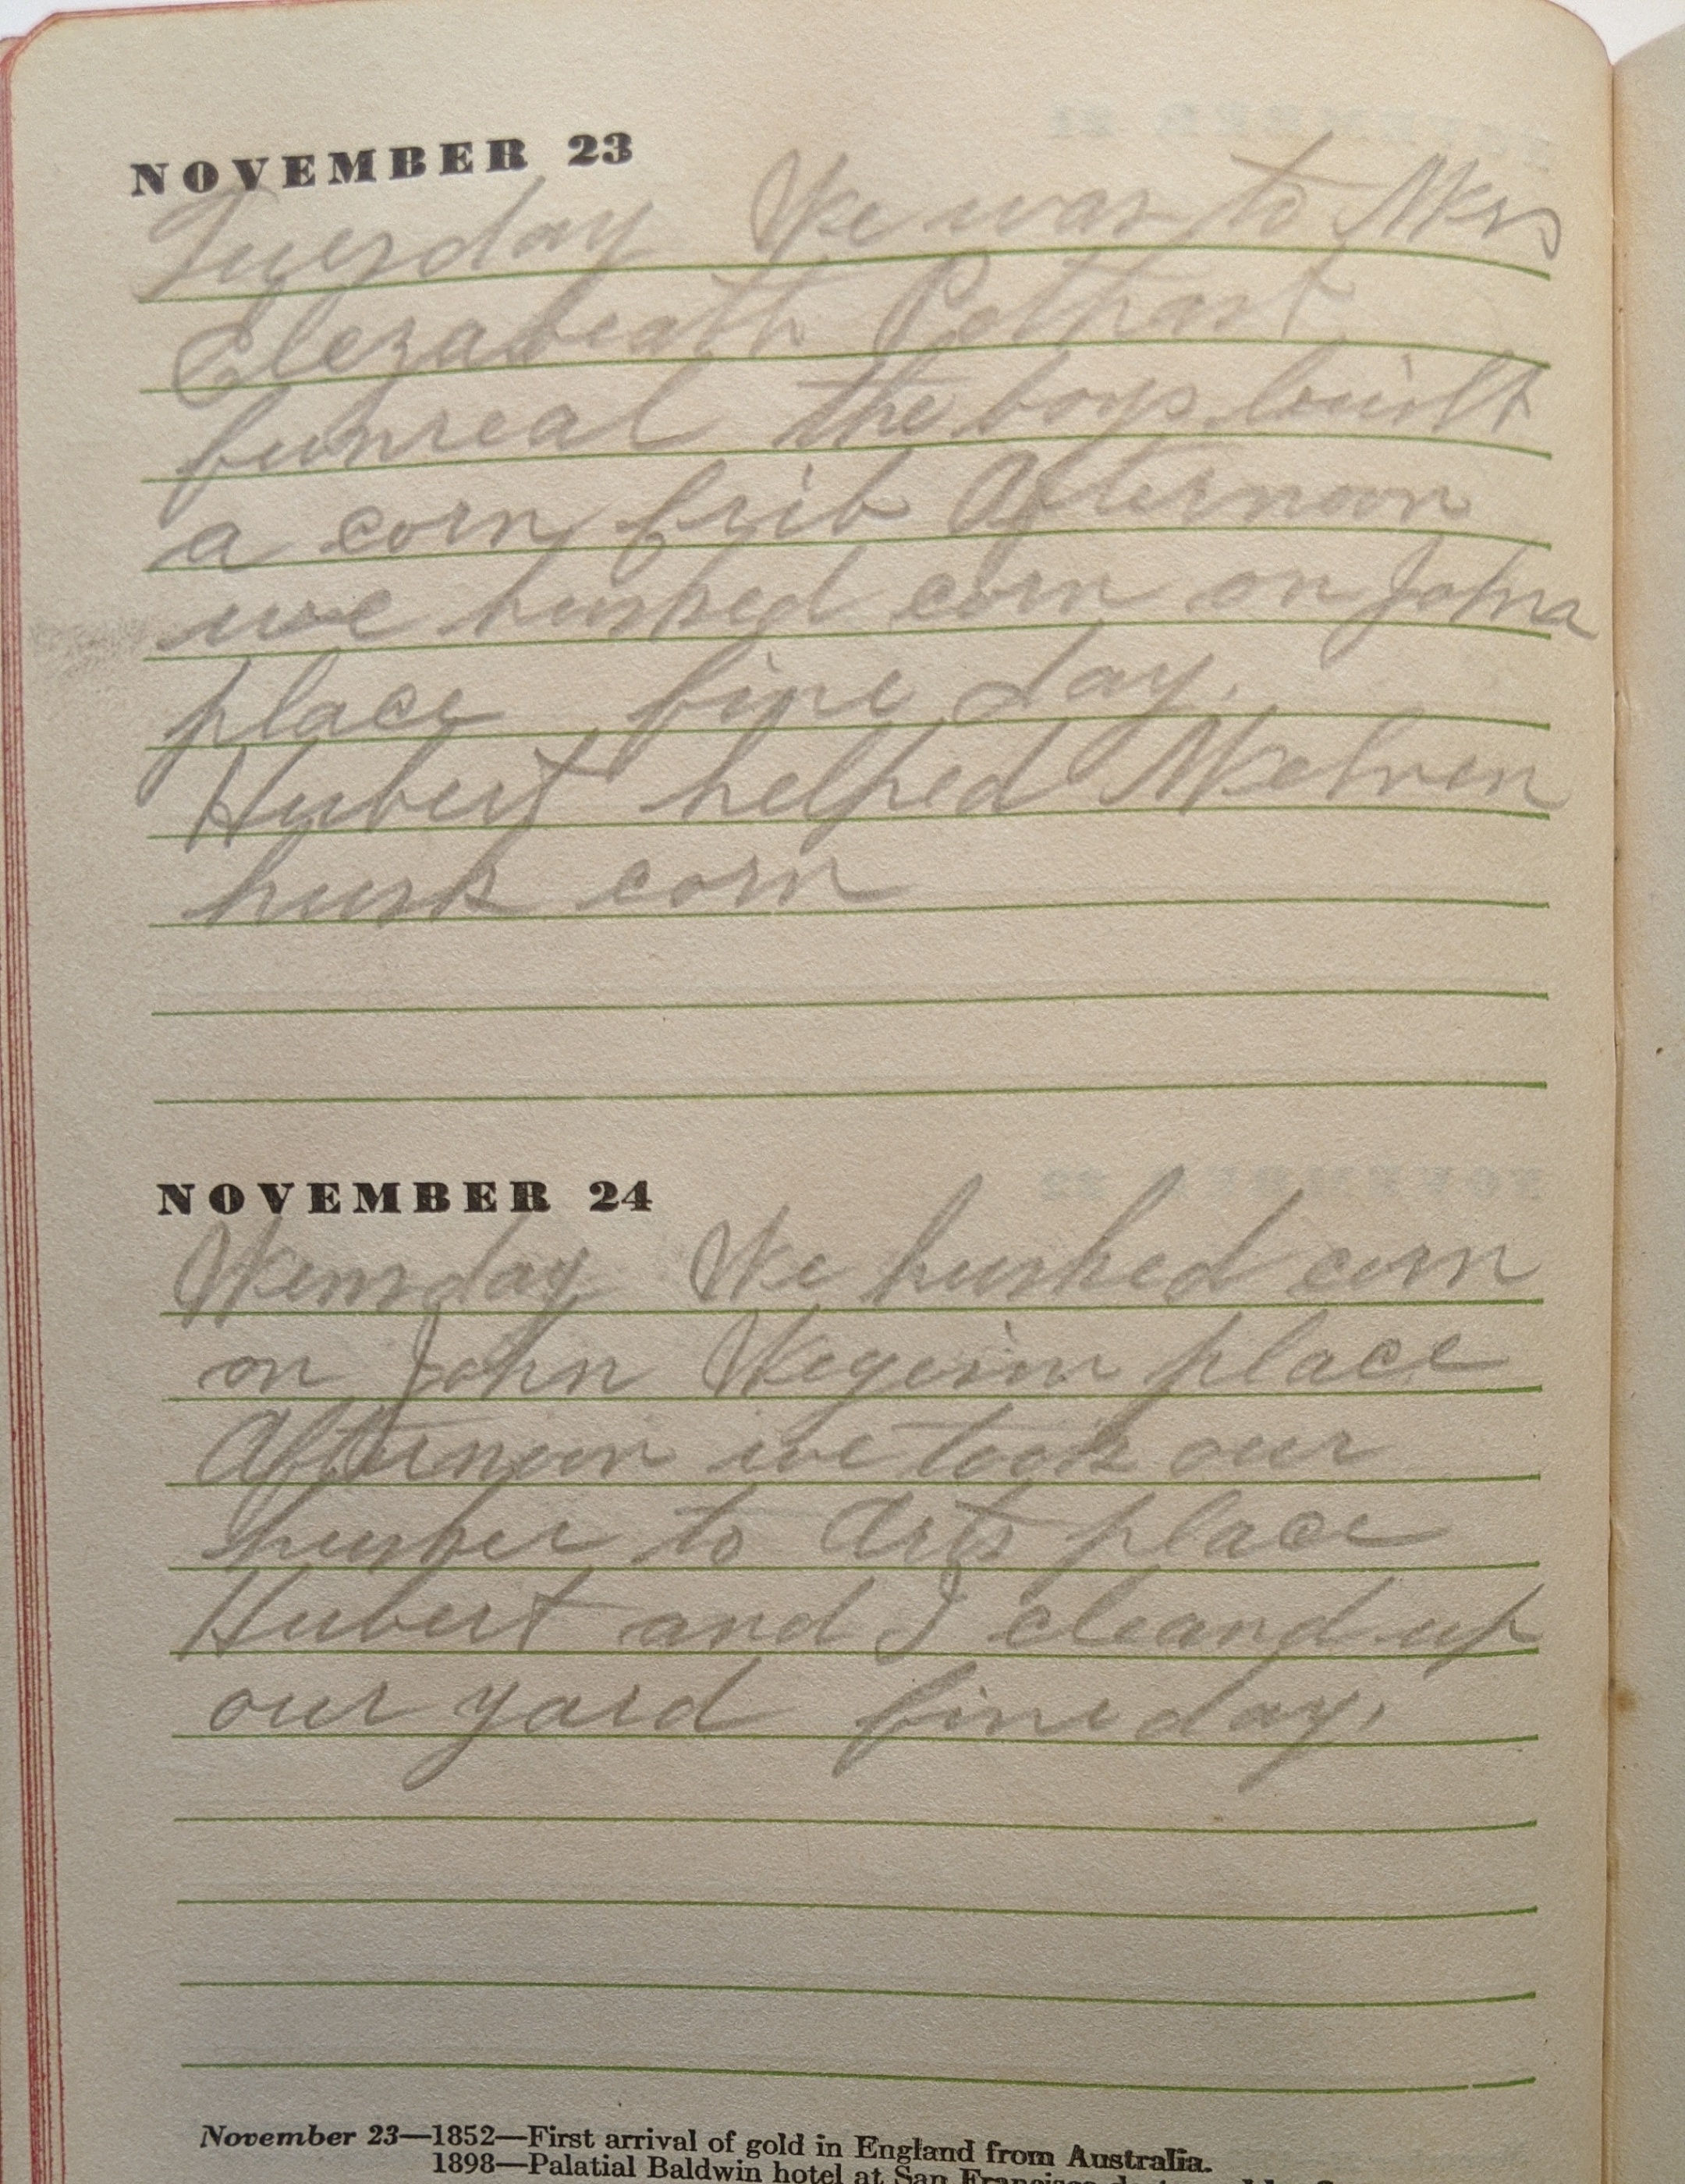 NOVEMBER 23
Tuesday We was to Mrs
Elezabeath Pothast
funreal the boys built
a corn frib Afternoon
we husked corn on Johna
place fine day.
Hubert helped Melven
husk corn
NOVEMBER 24
Wensday We husked corn
on John place
Afternoon we took our
husker to Arts place
Hubert and I cleand up
our yard fine day.
November 23—1852—First arrival of gold in England from Australia.
1898—Palatial Baldwin hotel at San Francisco